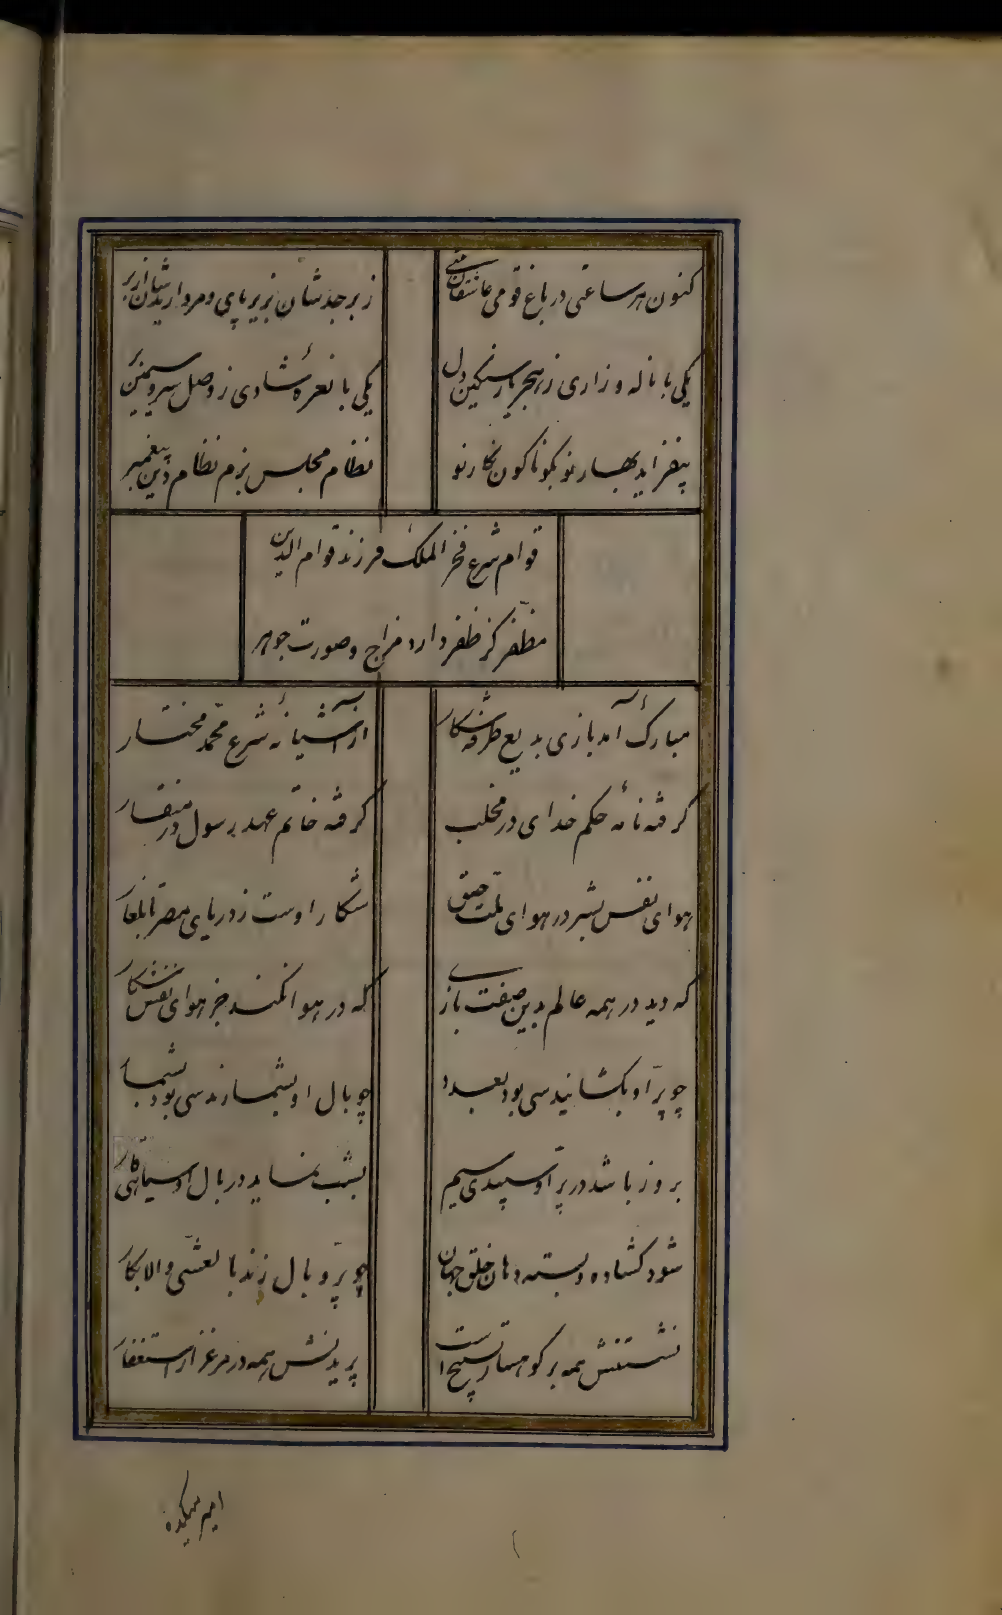 کنون هر ساعتی در باغ قومی عاشقان بینی
زبرجدشان بزیر پای و مرواریدشان از بر
یکی با ناله و زاری ز هجر یار سنگین دل
یکی با نعرهٔ شادی ز وصل سرو سیمین بر
بیفزاید بهار نو بگوناگون نگار نو
نظام مجلس بزم نظام دین پیغمبر
قوام شرع فخر الملک فرزند قوام الدین
مظفر کز ظفر دارد مزاج و صورت جوهر
مبارک آمد بازی بدیع طرفه شکار
از آشیانهٔ شرع محمد مختار
گرفته نامهٔ حکم خدای در مخلب
گرفته خاتم عهد رسول در منقار
هوای نفس بشیر در هوای ملت حق
شکار اوست ز دریای مصر تا بلغار
که دید در همه عالم بدین صفت بازی
که در هوا نکند جز هوای نفس شکار
چو پرّ او بگشایند سی بود بعدد
چو بال او بشمارند سی بود بشمار
بروز باشد در پر او سپیدی سیم
بشب نماید در بال او سیاهی قار
شود گشاده و بسته دهان خلق جهان
چو پرّ و بال زند با لعشّی والابکار
نشستنش همه بر کوهسار تسبیح است
پریدنش همه در مرغزار استغفار
امیر میکده